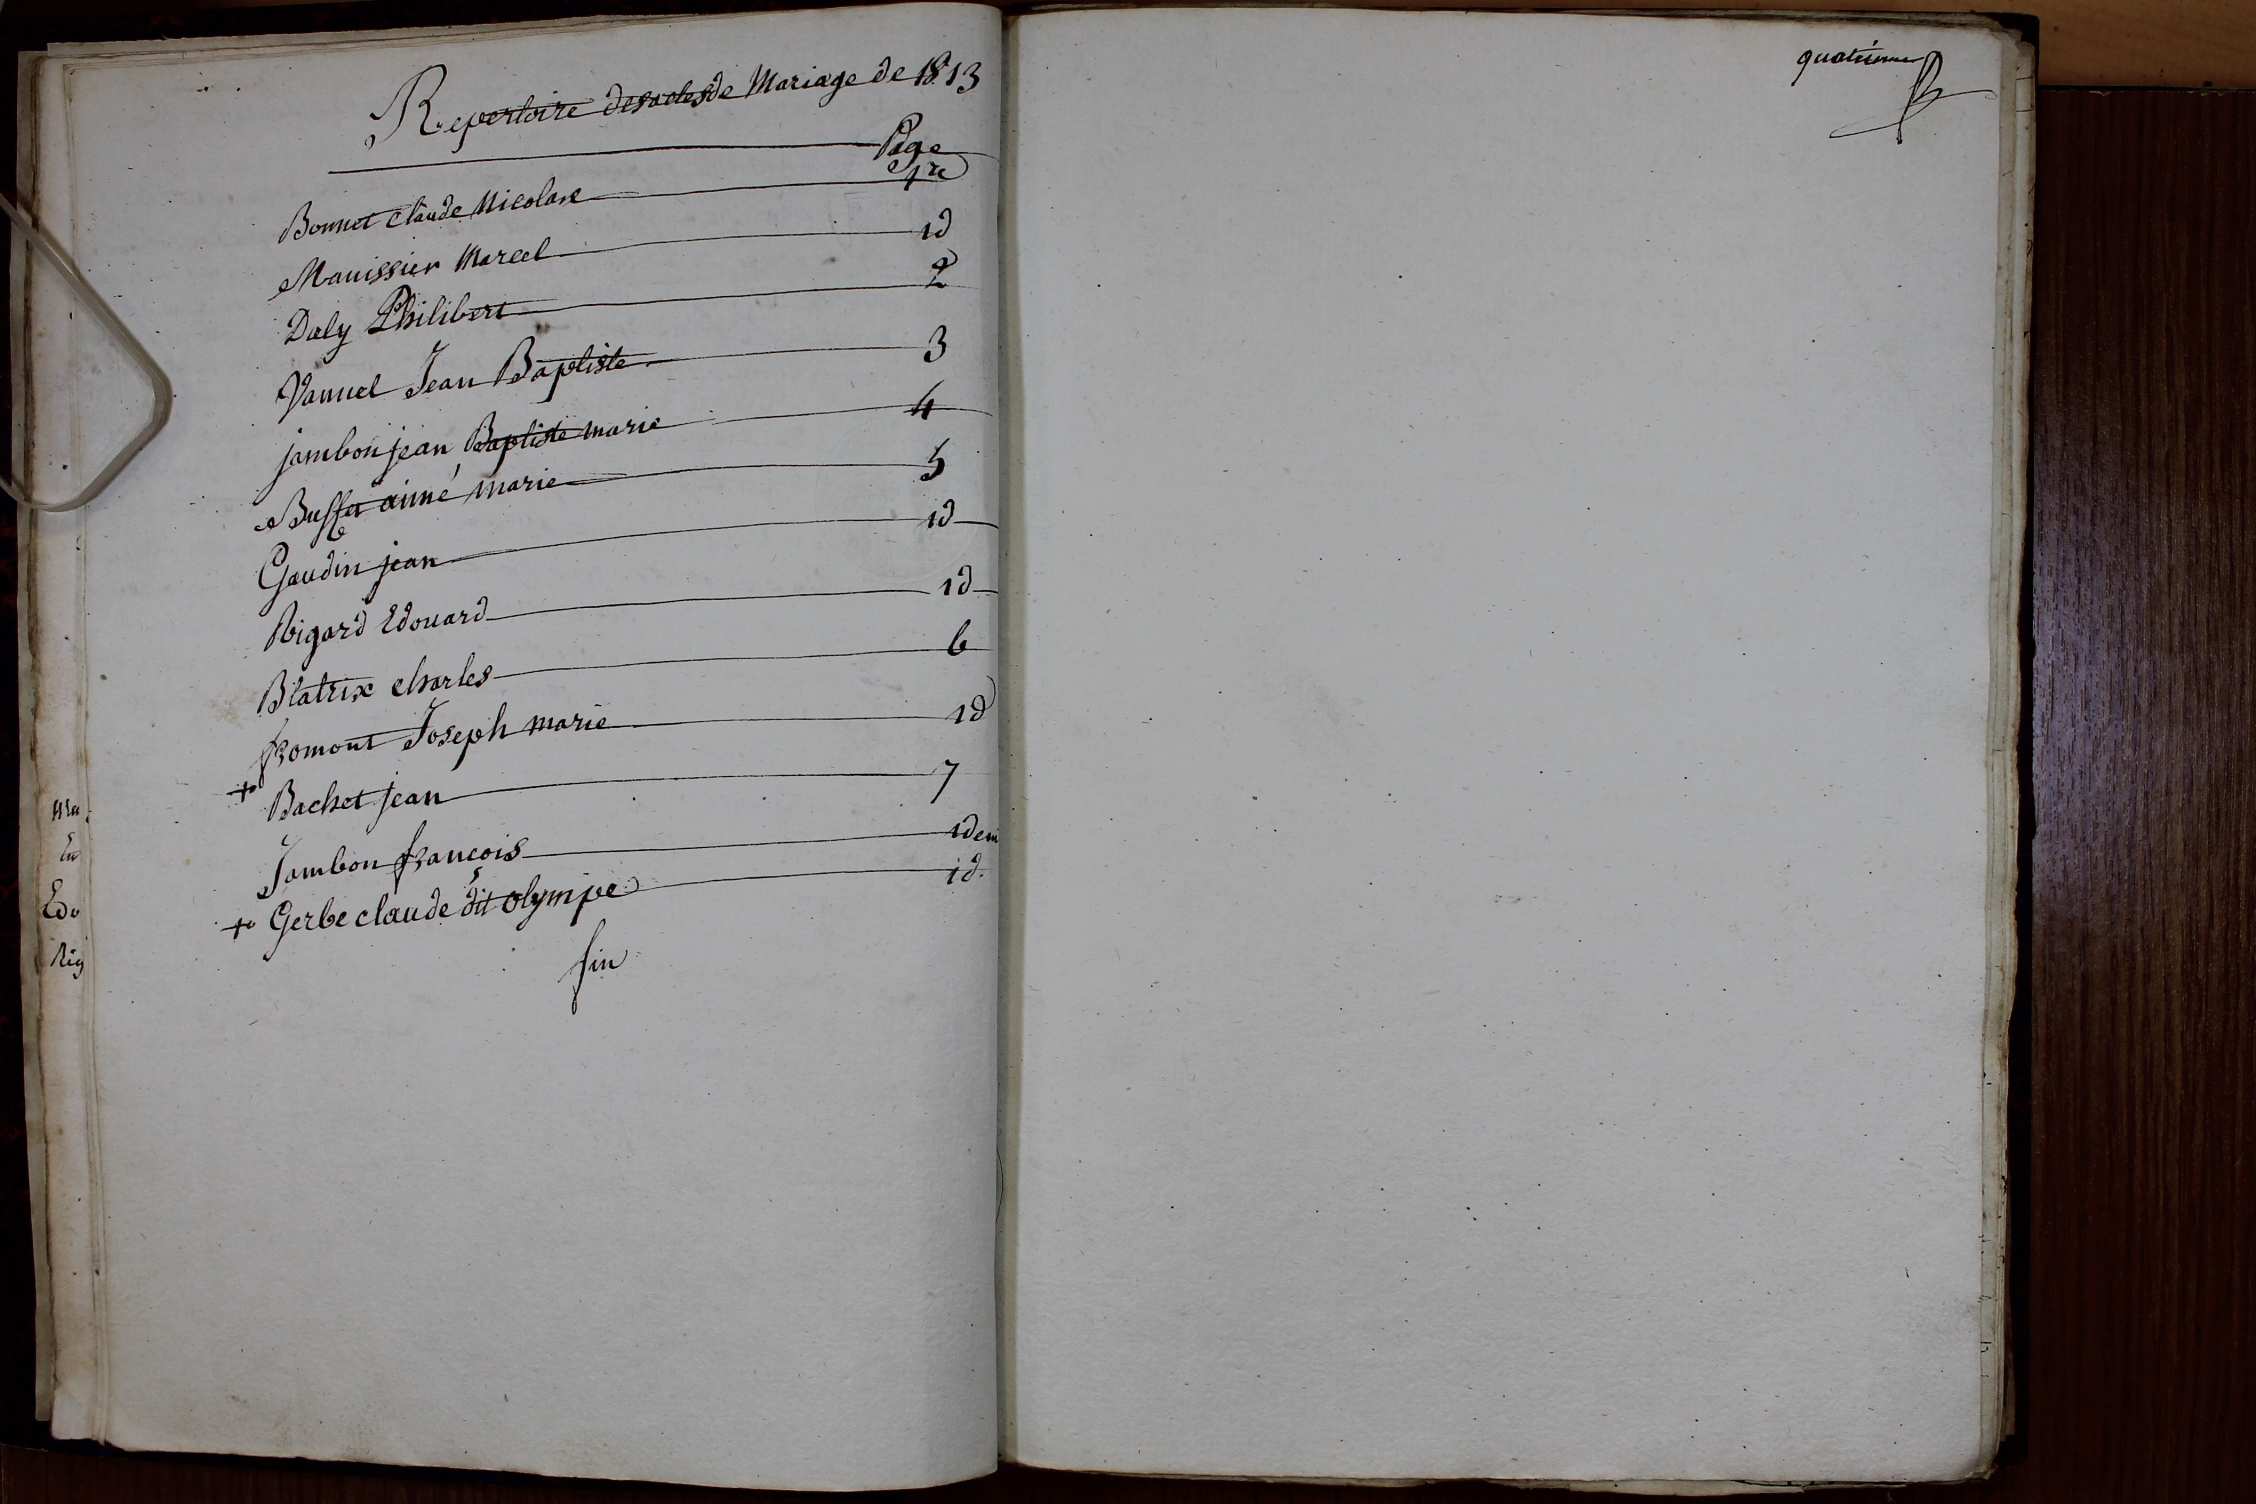 Repertoire des actes de Mariage de 1813
Page
Bonnet Claude Nicolas 1re
Manissier Marcel id
Daly Philibert 2
Vannel Jean Baptiste 3
jambon jean Baptiste marie 4
Buffet aimé marie 5
Gaudin jean id
Rigard Edouard id
Blatrix charles 6
fromont Joseph marie id
+ Bachet jean 7
Jambon françois idem
+ Gerbe claude dit olympe id.
fin
En
Edo
Rig
quatrieme